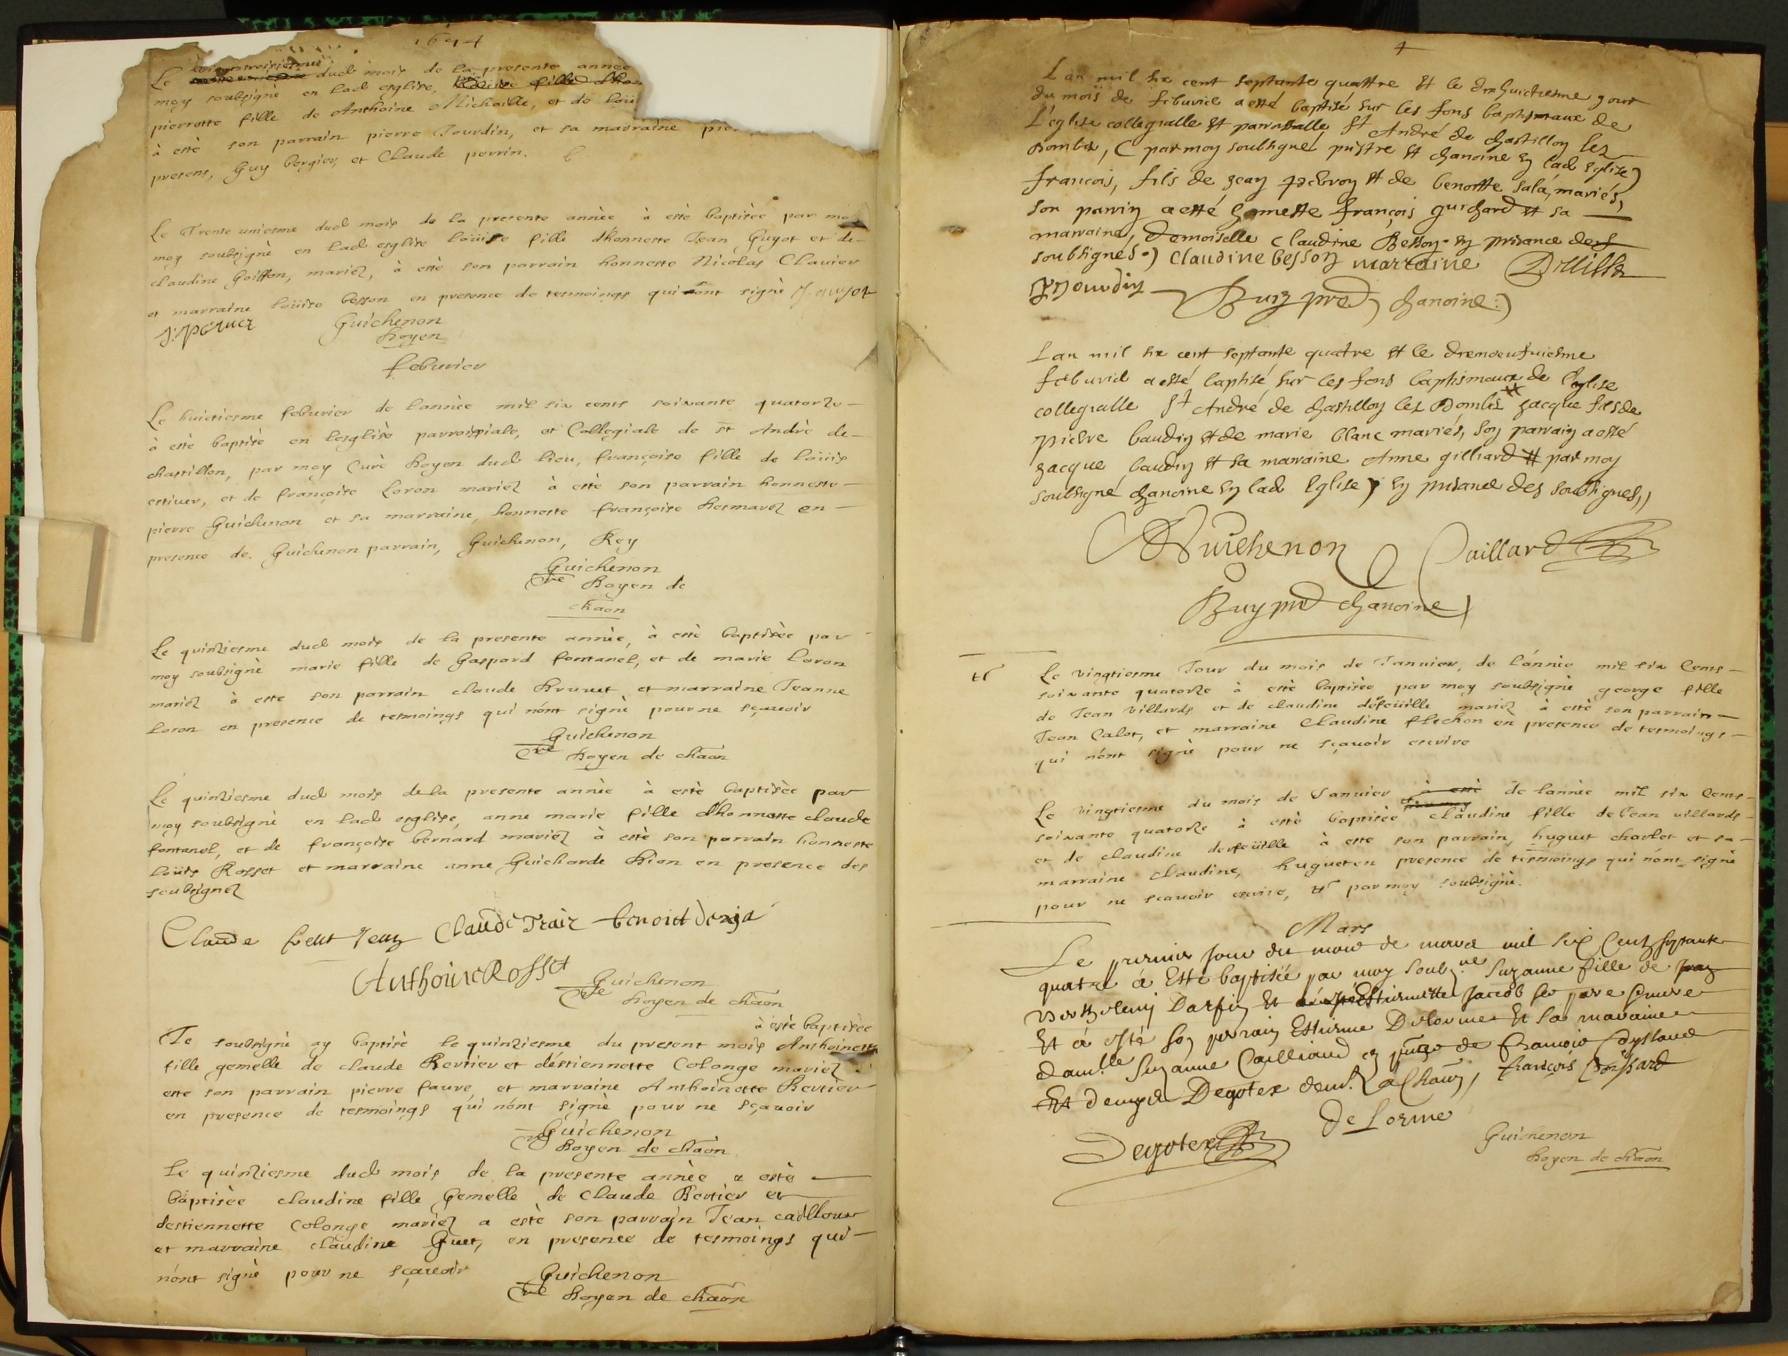 1674
Le dud mois de la presente année
moy soubsigné en lad esglise,
pierrette fille de Anthoine Michaille, et de Loui
à esté son parrain pierre Jourdin, et sa marraine
present, Guy bergier, et Claude perrin.
Le Trente uniesme dud mois de la presente année à esté baptisée par
moy soubsigné en lad esglise Louïse fille d'honneste Jean Guyot et de
claudine Goiffon, mariez, à esté son parrain honneste Nicolas Clavier
et marraine Louïse besson en presence de tesmoings qui ont signé J. guyot
Guichenon
Doyen
febvrier
Le huictiesme febvrier de l'année mil six cents soixante quatorze
à esté baptisé en l'esglise parroissiale, et Collegiale de st André de
chastillon, par moy Curé Doyen dud lieu, françoise fille de Louïs
estiver, et de françoise Loron mariez à esté son parrain honneste
pierre Guichenon et sa marraine, honneste françoise Desmarez en
presence de Guichenon parrain, Guichenon, Rey
Guichenon
Cré Doyen de
chaōn
Le quinziesme dud mois de la presente année, à esté baptisée par
moy soubsigné marie fille de Gaspard fontanel, et de marie Loron
mariez à esté son parrain claude Brunet et marraine Jeanne
Loron en presence de tesmoings qui n'ont signé pour ne sçavoir
Guichenon
Cré Doyen de chaōn
Le quinziesme dud mois de la presente année à esté baptisée par
moy soubsigné en lad esglise, anne marie fille d'honneste claude
fontanel, et de françoise bernard mariez à esté son parrain honneste
Louïs Rosset et marraine anne Guicharde Bion en presence des
soubsignez
Claude petit Jean Claude Traiz benoict
Anthoine Rosset
Guichenon
Cré Doyen de chaōn
à esté baptisée
Je soubsigné ay baptisé le quinziesme du present mois Anthoinette
fille gemelle de claude Bertier et d'estiennette Colonge mariez
esté son parrain pierre faure, et marraine Anthoinette Bertier
en presence de tesmoings qui n'ont signé pour ne sçavoir
Guichenon
Cré Doyen de chaōn
Le quinziesme dud mois de la presente année a esté
baptisée claudine fille Gemelle de Claude Bertier et
d'estiennette Colonge mariez a esté son parrain Jean cailloux
et marraine claudine Guet, en presence de tesmoings qui
n'ont signé pour ne sçavoir
Guichenon
Cré Doyen de chaōn
4
L'an mil six cent septante quattre et le dixhuictiesme jour
du mois de febvrié a esté baptisé sur les fons baptismaux de
L'eglise collegialle et parroissalle St André de chastillon lez
Dombes, par moy soubsigné prestre et chanoine en lad Eglise
françois, fils de jean et de benoitte sala, mariés,
son parrin a esté honneste françois guichard et sa
marraine, Demoiselle Claudine Besson. en presance des
soubsignés. Claudine besson marraine
Buy pre chanoine
L'an mil six cent septante quatre et le dixneufviesme
febvrié a esté baptisé sur les fons baptismaux de l'eglise
collegialle St André de chastillon lez Dombes jacque fils de
pierre baudin et de marie blanc mariés, son parrain a esté
jacque baudin et sa marraine Anne gilliard # par moy
soubsigné chanoine en lad Eglise en presance des soubsignés,
Guichenon Gaillard
Buy pre chanoine
Le vingtiesme Jour du mois de Janvier, de l'année mil six Cents
soixante quatorze à esté baptisée par moy soubsigné george fille
de Jean villards et de claudine deseüille mariez à esté son parrain
Jean Calot, et marraine Claudine flechon en presence de tesmoings
qui n'ont signé pour ne sçavoir escrire
Le vingtiesme du mois de Janvier de l'année mil six Cents
soixante quatorze à esté baptisée Claudine fille de Jean villards
et de claudine deseüille à esté son parrain, huguet charlet et sa
marraine Claudine, huguet en presence de tesmoings qui n'ont signé
pour ne sçavoir escrire, par moy soubsigné.
Mars
Le premier Jour du mois de mars mil six Centz septante
quatre à Esté baptisée par moy soubz.né Suzanne fille de
Barthelemy Darfin et Estiennette Jacob ses pere et mere
Et à esté son parrain Estienne Delorme Et sa maraine
dam.lle Suzanne Cailliaud en de François
Degotex françois
Degotex De Lorme
Guichenon
Doyen de chaōn